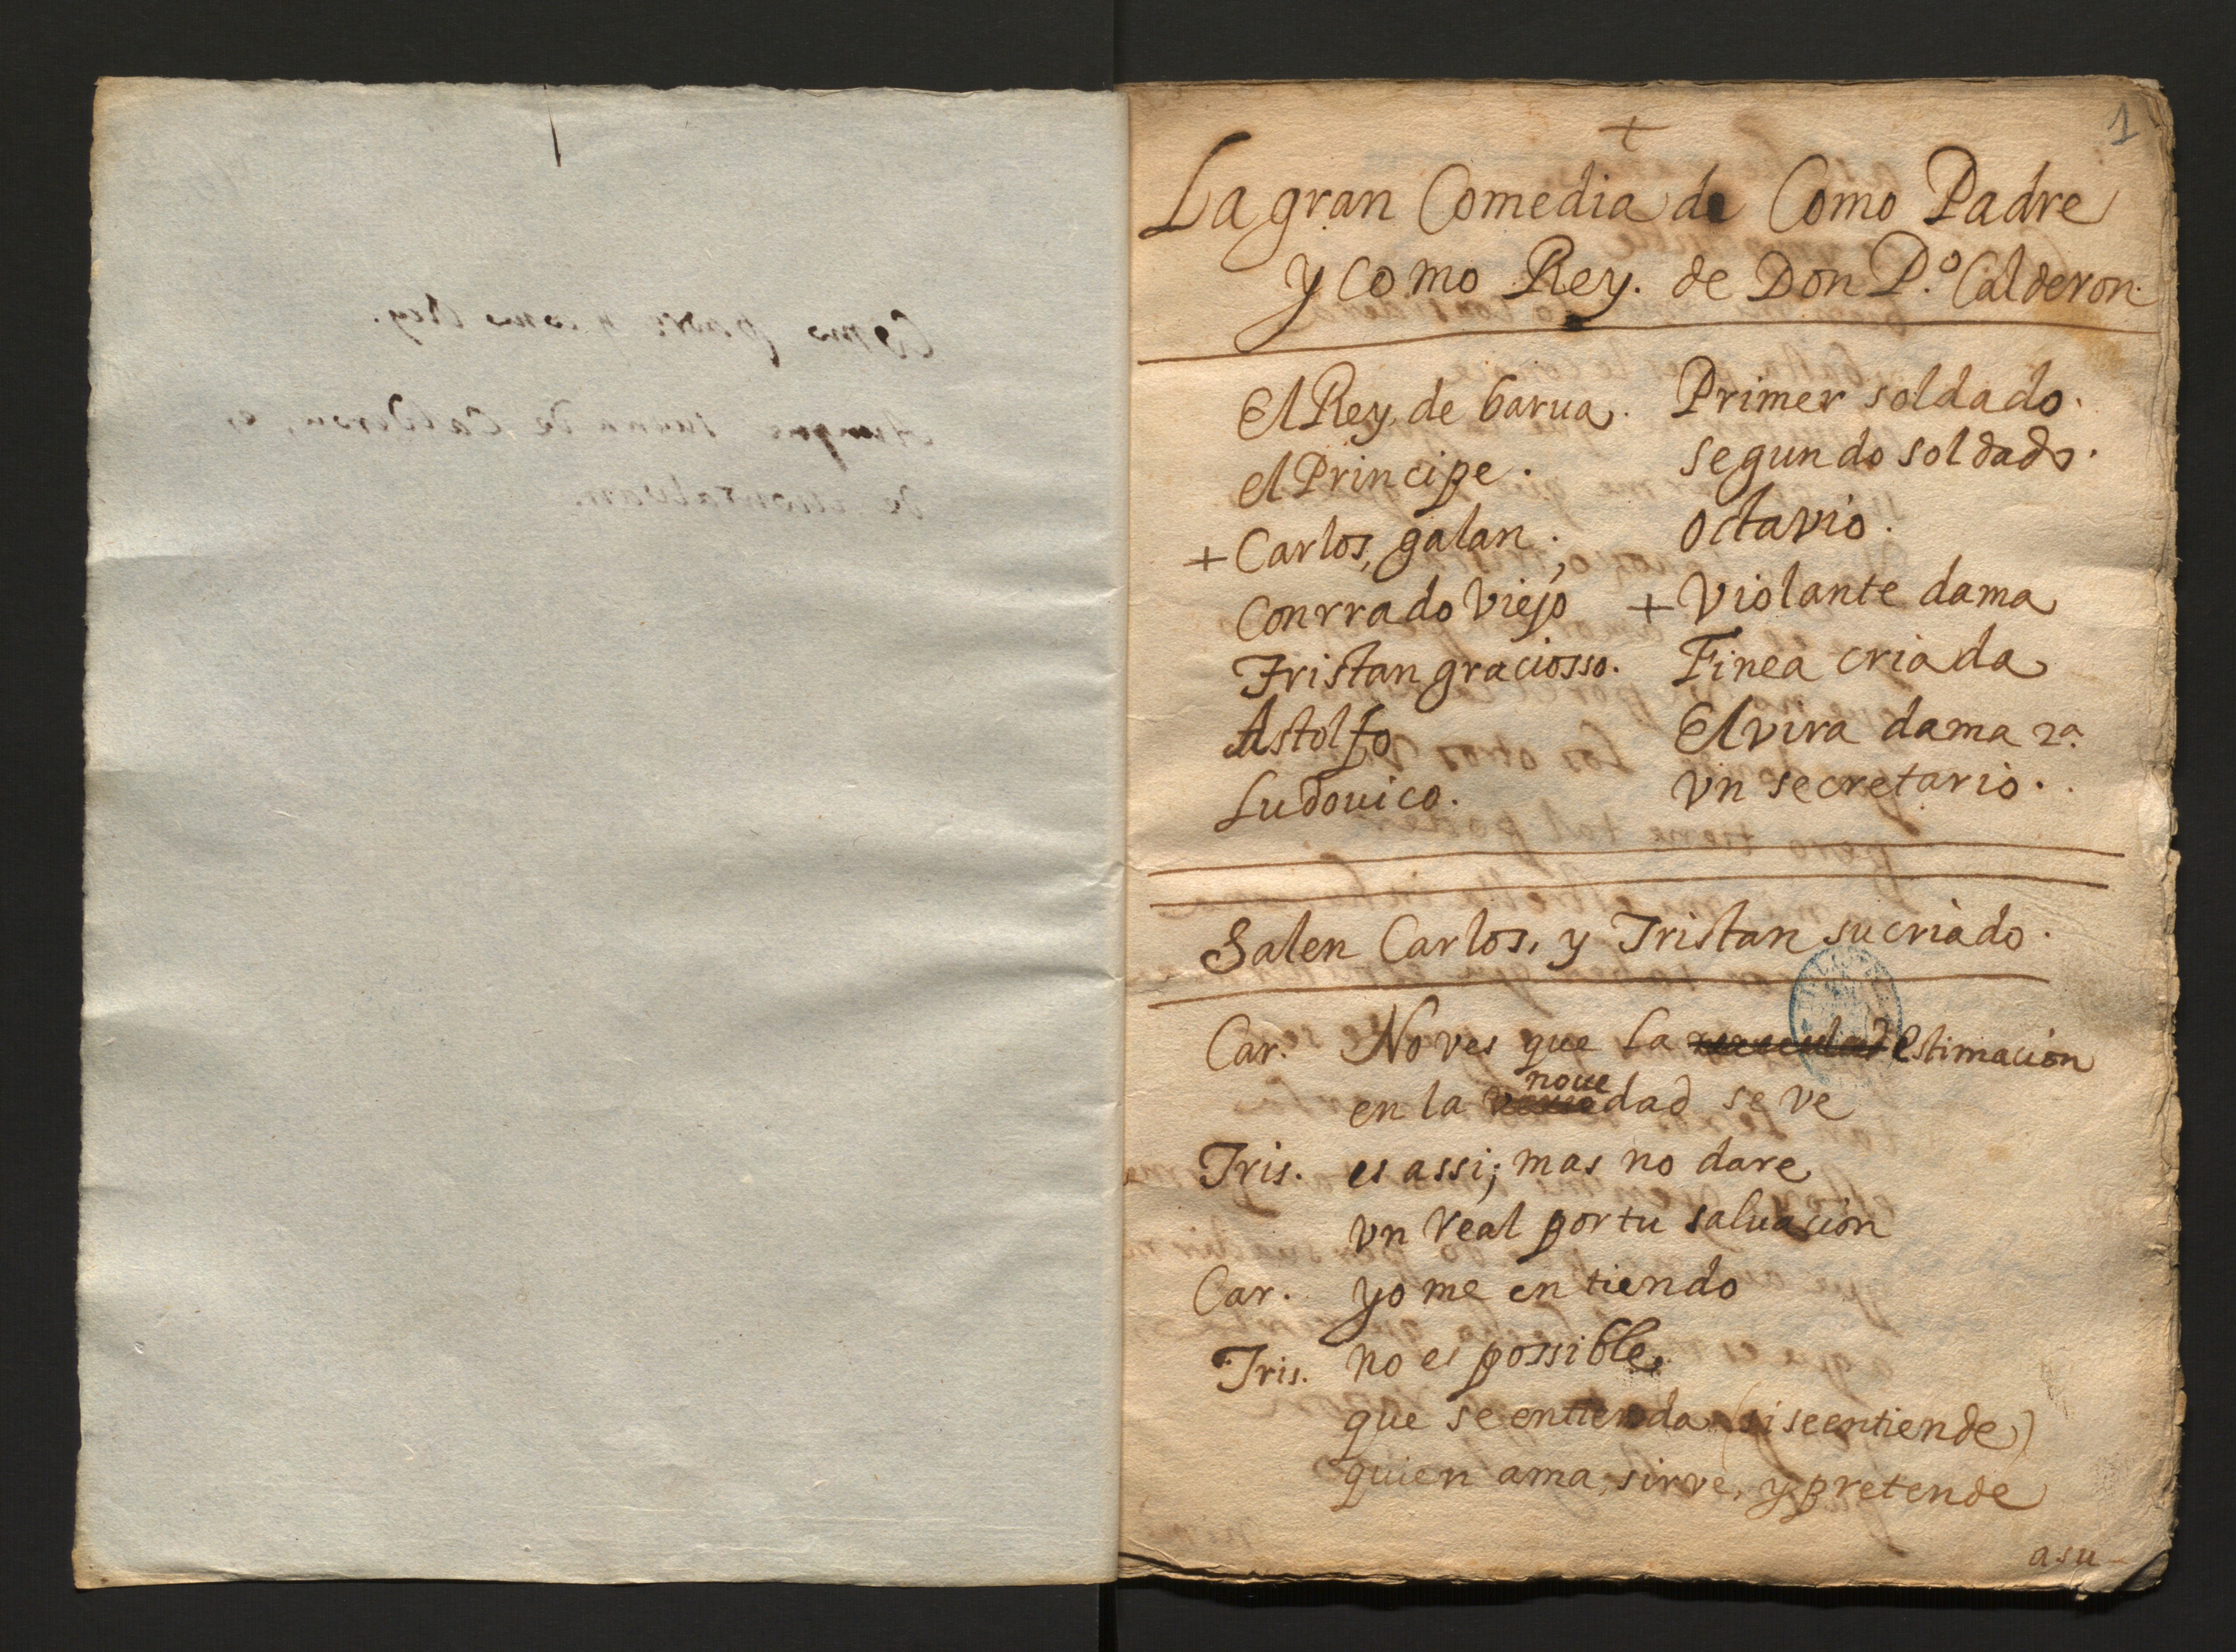 1
+
La gran Comedia de Como Padre
y como Rey. de Don P.º Calderon.
El Rey de barua.
el Principe.
+ Carlos, galan.
Conrrado Viejo
Tristan graciosso.
Astolfo
Ludouico.
Primer soldado.
segundo soldado.
octavio.
+ Violante dama
Finea criada
Elvira dama 2ª.
vn secretario.
Salen Carlos, y Tristan su criado.
Car. No ves que la estimacion
en la nouedad se ve
Tris. es assi; mas no dare
vn real por tu saluacion
Car. yo me entiendo
Tris. no es possible,
que se entienda (si se entiende)
quien ama, sirve, y pretende
asu-